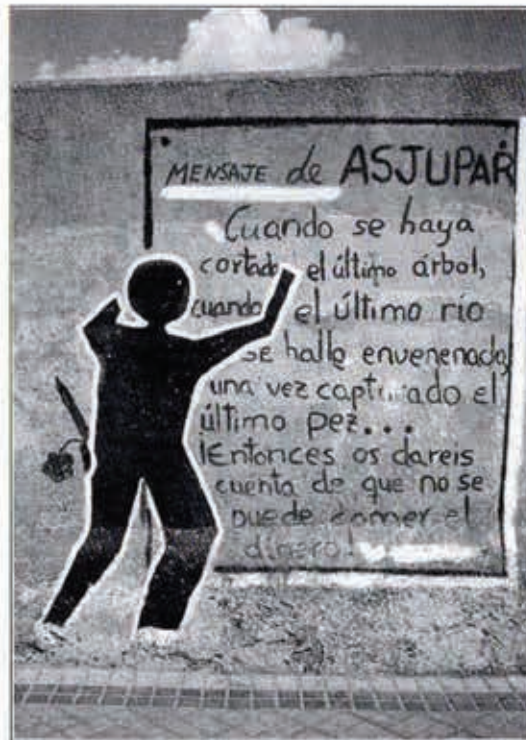 MENSAJE de ASJUPAR
Cuando se haya
cortado el último árbol,
cuando el último río
se halle envenenado,
una vez capturado el
último pez...
¡Entonces os dareis
cuenta de que no se
puede comer el
dinero!